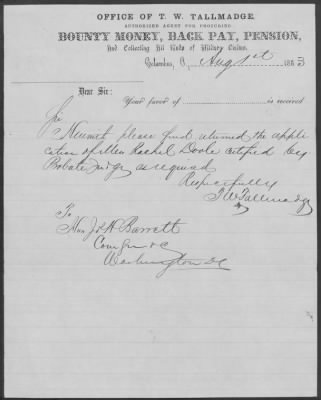 OFFICE OF T. W. TALLMADGE,
AUTHORIZED AGENT FOR PROCURING
BOUNTY MONEY, BACK PAY, PENSION,
And Collecting All Kinds of Military Claims.
Columbus, O., Aug 1st 1863
Dear Sir: Your favor of is received
Sir
Herewith please find returned the appli
cation of Rachel Doole certified by
Probate Judge as required
Respectfully
T W Tallmadge
To
Hon J H Barrett
Com
Washington DC